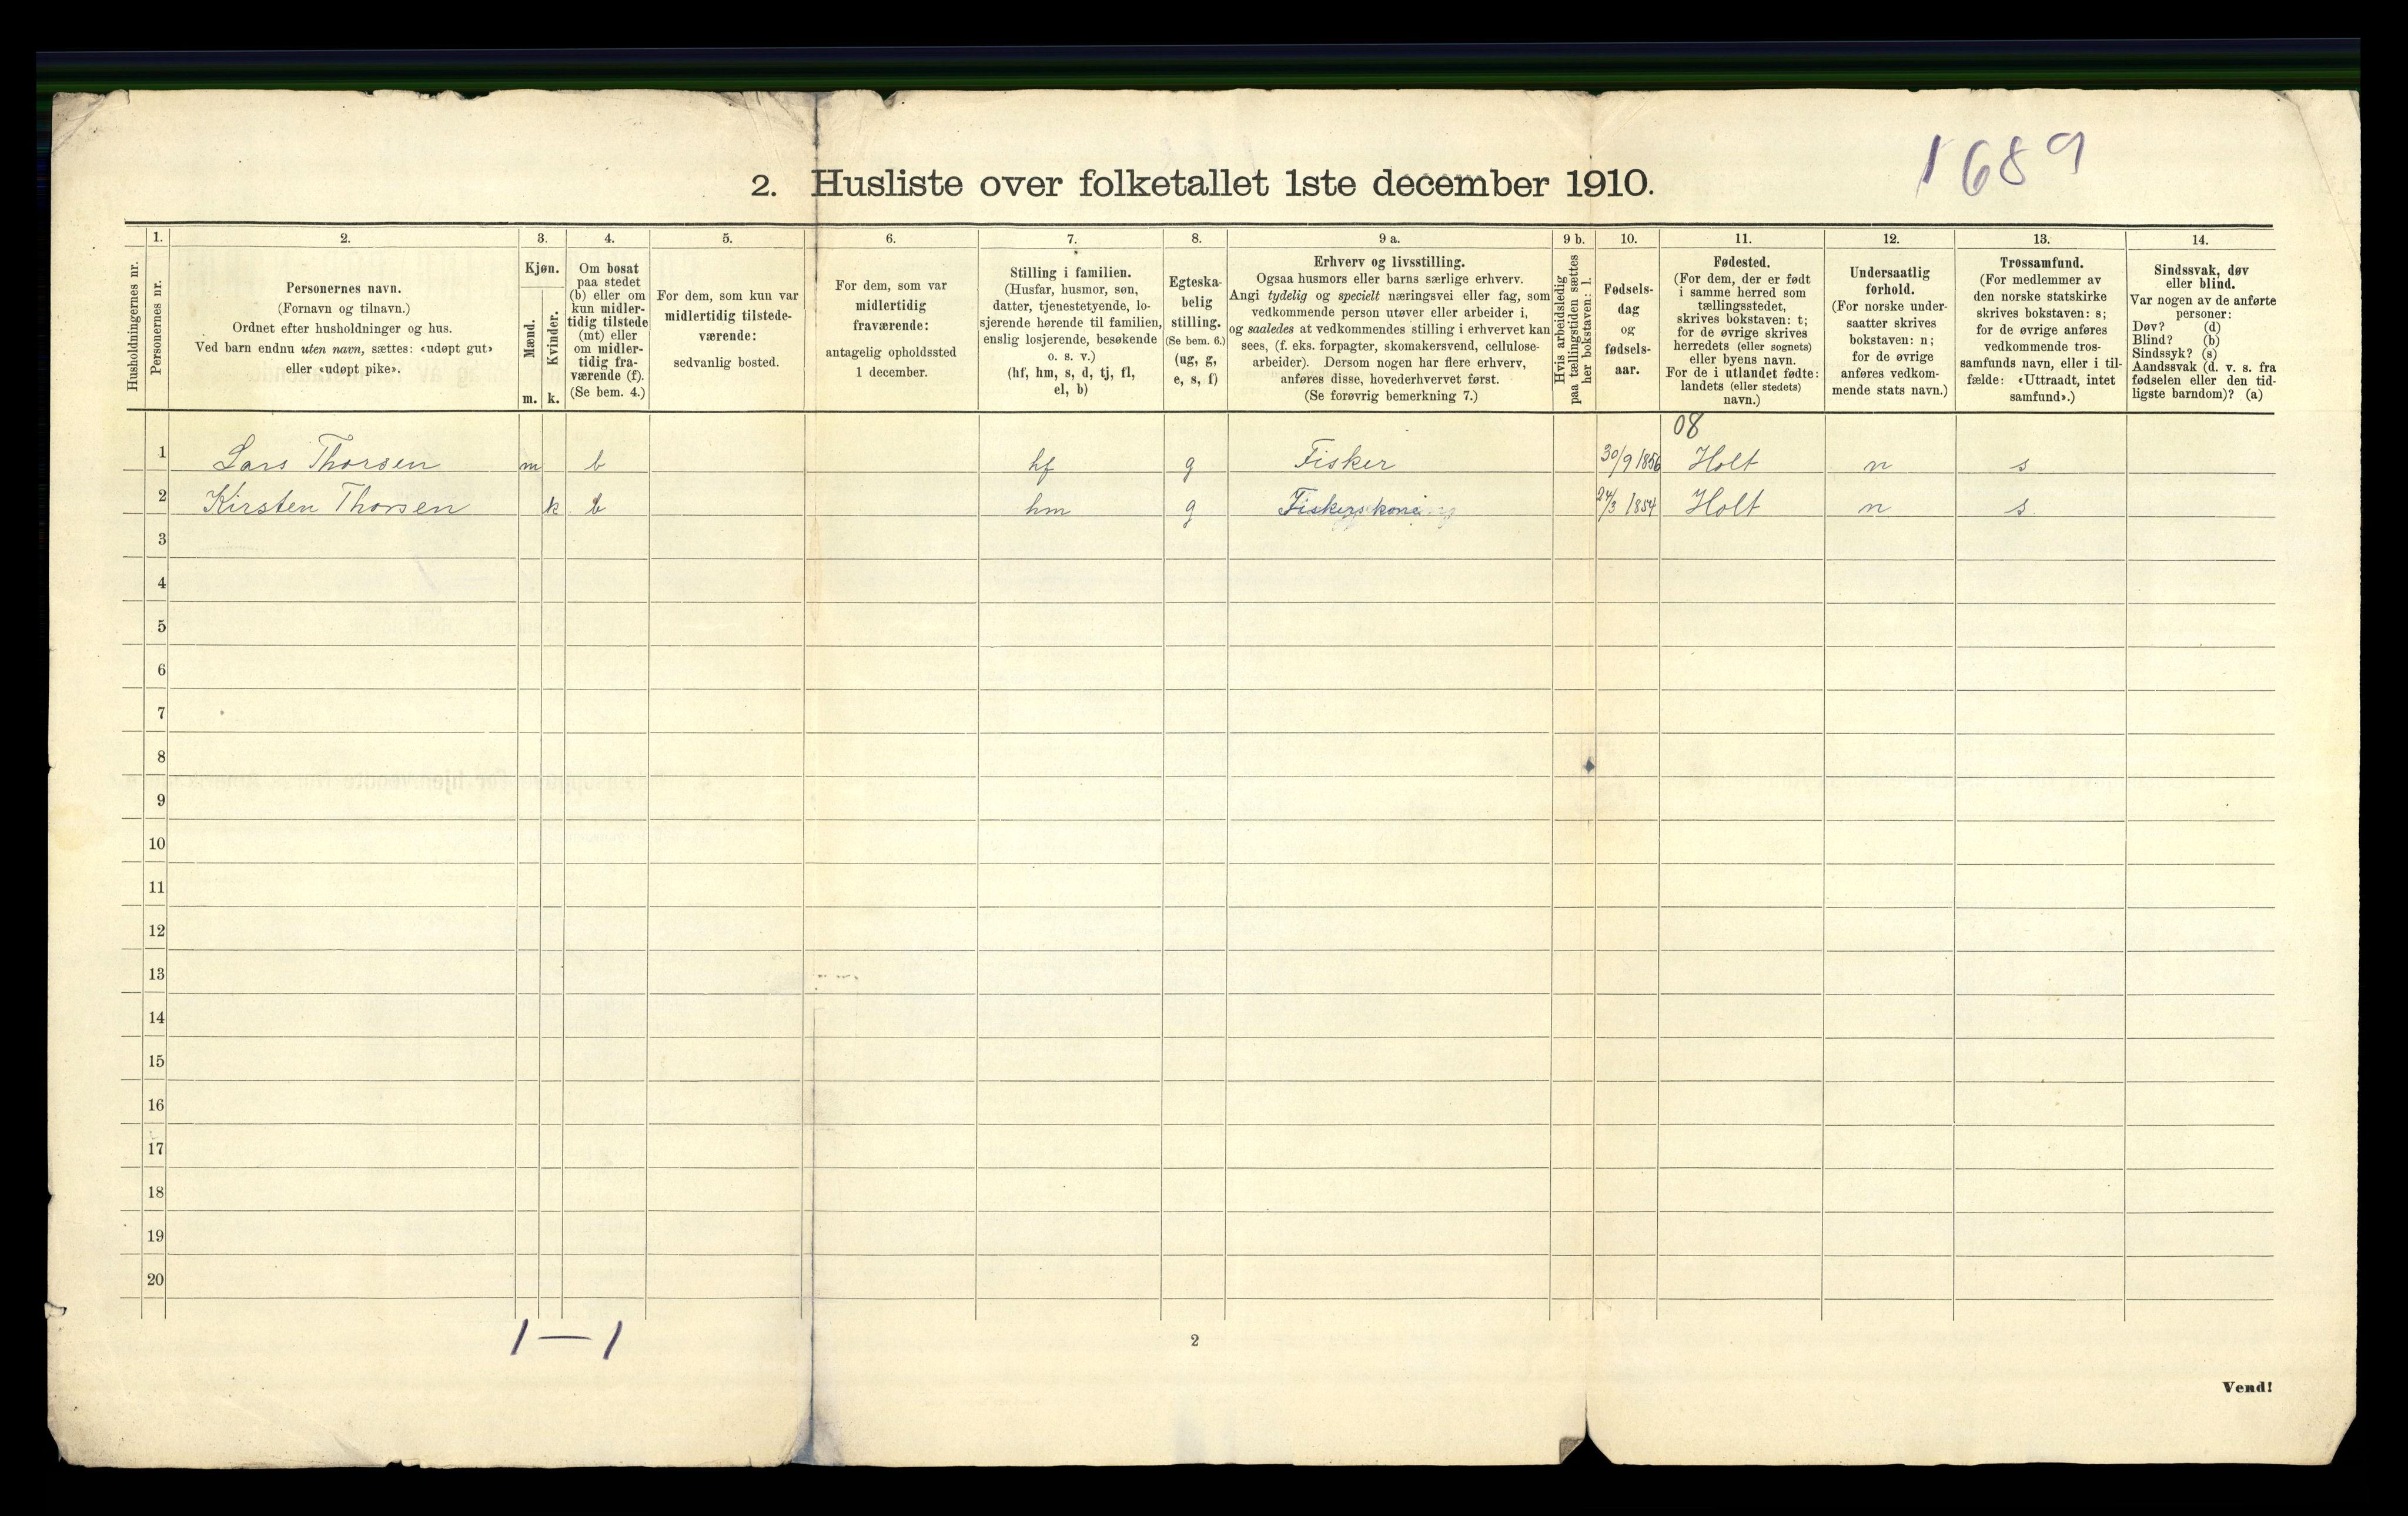 1689
2. Husliste over folketallet 1ste december 1910.
Husholdningernes nr.
1.
Personernes nr.
2.
Personernes navn.
(Fornavn og tilnavn.)
Ordnet efter husholdninger og hus.
Ved barn endnu uten navn, sættes: «udøpt gut»
eller «udøpt pike».
3.
Kjøn.
Mænd.
Kvinder.
m. k.
4.
Om bosat
paa stedet
(b) eller om
kun midler-
tidig tilstede
(mt) eller
om midler-
tidig fra-
værende (f).
(Se bem. 4.)
5.
For dem, som kun var
midlertidig tilstede-
værende:
sedvanlig bosted.
6.
For dem, som var
midlertidig
fraværende:
antagelig opholdssted
1 december.
7.
Stilling i familien.
(Husfar, husmor, søn,
datter, tjenestetyende, lo-
sjerende hørende til familien,
enslig losjerende, besøkende
o. s. v.)
(hf, hm, s, d, tj, fl,
el, b)
8.
Egteska-
belig
stilling.
(Se bem. 6.)
(ug, g,
e, s, f)
9 a.
Erhverv og livsstilling.
Ogsaa husmors eller barns særlige erhverv.
Angi tydelig og specielt næringsvei eller fag, som
vedkommende person utøver eller arbeider i,
og saaledes at vedkommendes stilling i erhvervet kan
sees, (f. eks. forpagter, skomakersvend, cellulose-
arbeider). Dersom nogen har flere erhverv,
anføres disse, hovederhvervet først.
(Se forøvrig bemerkning 7.)
9 b.
Hvis arbeidsledig
paa tællingstiden sættes
her bokstaven: l.
10.
Fødsels-
dag
og
fødsels-
aar.
11.
Fødested.
(For dem, der er født
i samme herred som
tællingsstedet,
skrives bokstaven: t;
for de øvrige skrives
herredets (eller sognets)
eller byens navn.
For de i utlandet fødte:
landets (eller stedets)
navn.)
12.
Undersaatlig
forhold.
(For norske under-
saatter skrives
bokstaven: n;
for de øvrige
anføres vedkom-
mende stats navn.)
13.
Trossamfund.
(For medlemmer av
den norske statskirke
skrives bokstaven: s;
for de øvrige anføres
vedkommende tros-
samfunds navn, eller i til-
fælde: «Uttraadt, intet
samfund».)
14.
Sindssvak, døv
eller blind.
Var nogen av de anførte
personer:
Døv? (d)
Blind? (b)
Sindssyk? (s)
Aandssvak (d. v. s. fra
fødselen eller den tid-
ligste barndom)? (a)
08
1 Lars Thorsen m b hf g Fisker 30/9 1856 Holt n s
2 Kirsten Thorsen k b hm g Fiskerskone 24/3 1854 Holt n s
3
4
5
6
7
8
9
10
11
12
13
14
15
16
17
18
19
20
1—1
2
Vend!